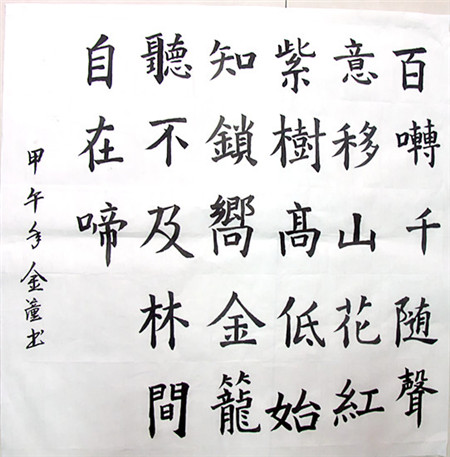 百囀千随聲
意移山花紅
紫樹髙低始
知鎖嚮金籠
聽不及林間
自在啼
甲午年金潼书